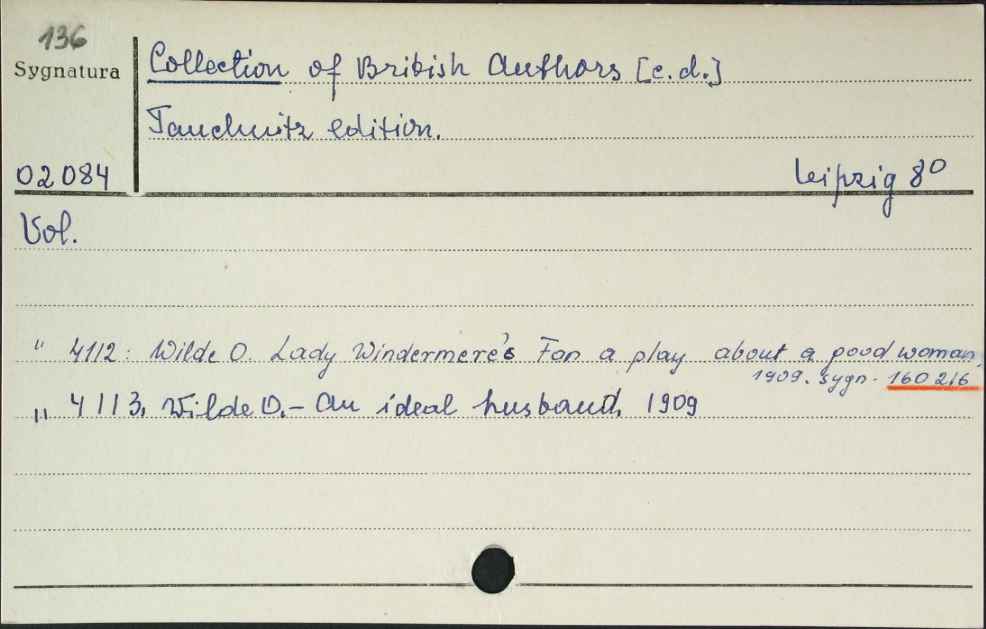 136
Sygnatura
Collection of British Authors [c.d.]
Tauchnitz edition.
02084
Leipzig 8°
Vol.
" 4112: Wilde O. Lady Windermere's Fan a play about a good woman,
1909. sygn. 160 216
" 4113. Wilde O. – An ideal husband. 1909